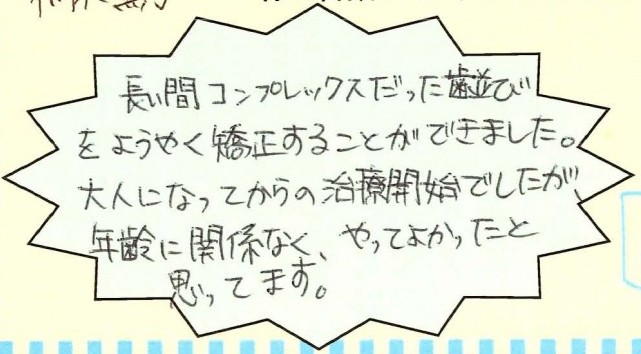 長い間コンプレックスだった歯並び
をようやく矯正することができました。
大人になってからの治療開始でしたが、
年齢に関係なく、やってよかったと
思ってます。